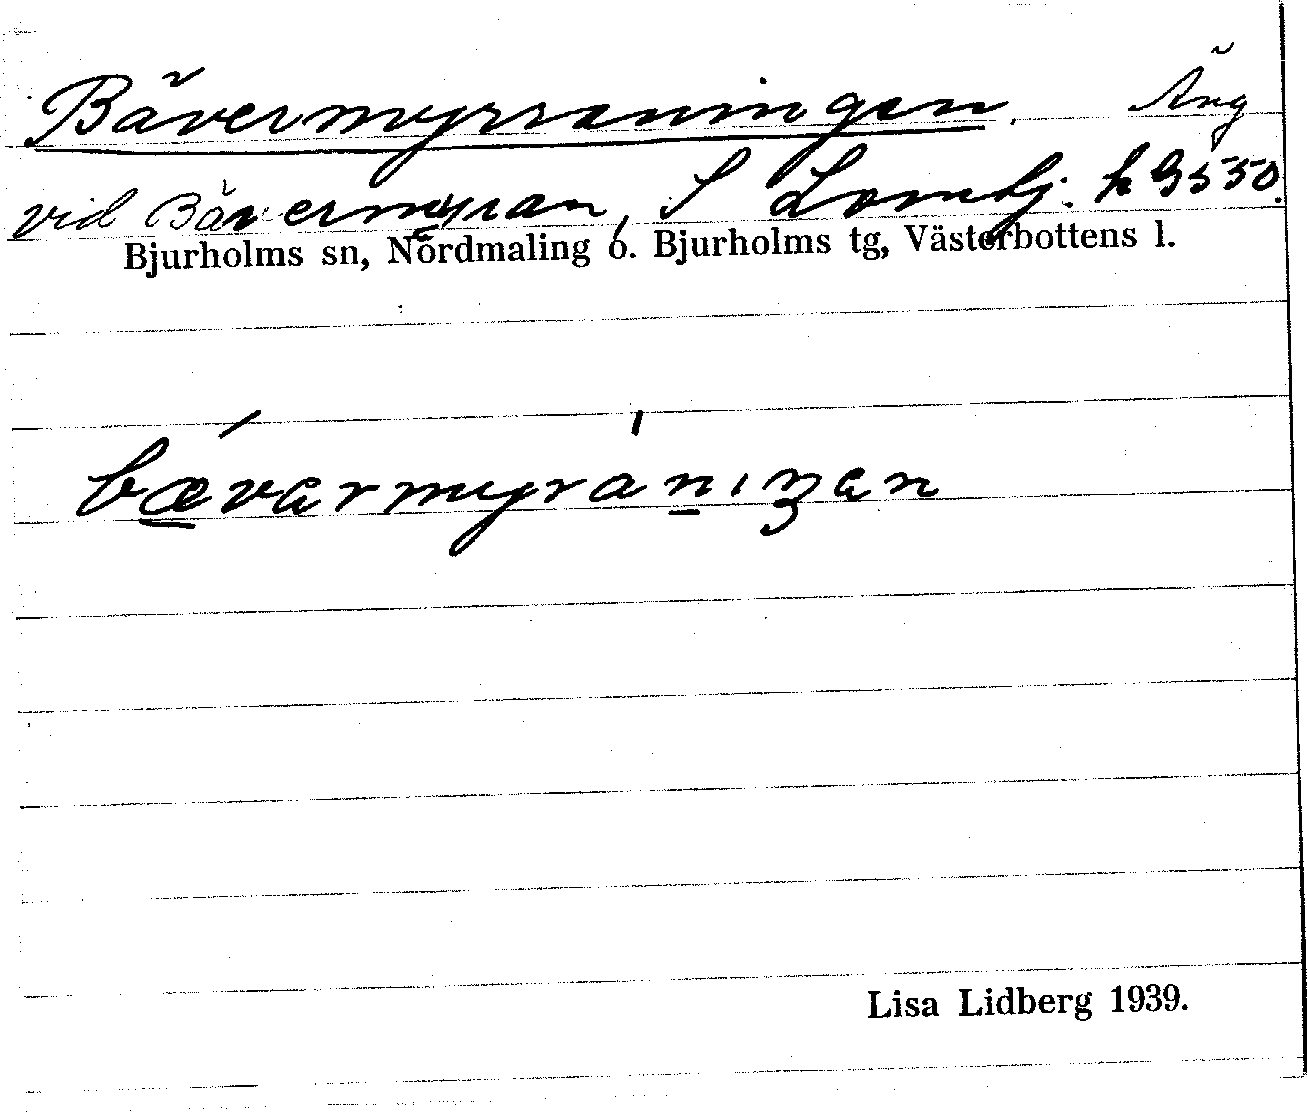 Bävermyrraningen. Äng
vid Bävermyran, S Lomtj. h 9550.
Bjurholms sn, Nordmaling o. Bjurholms tg, Västerbottens l.
bǽvarmyrániŋan
Lisa Lidberg 1939.